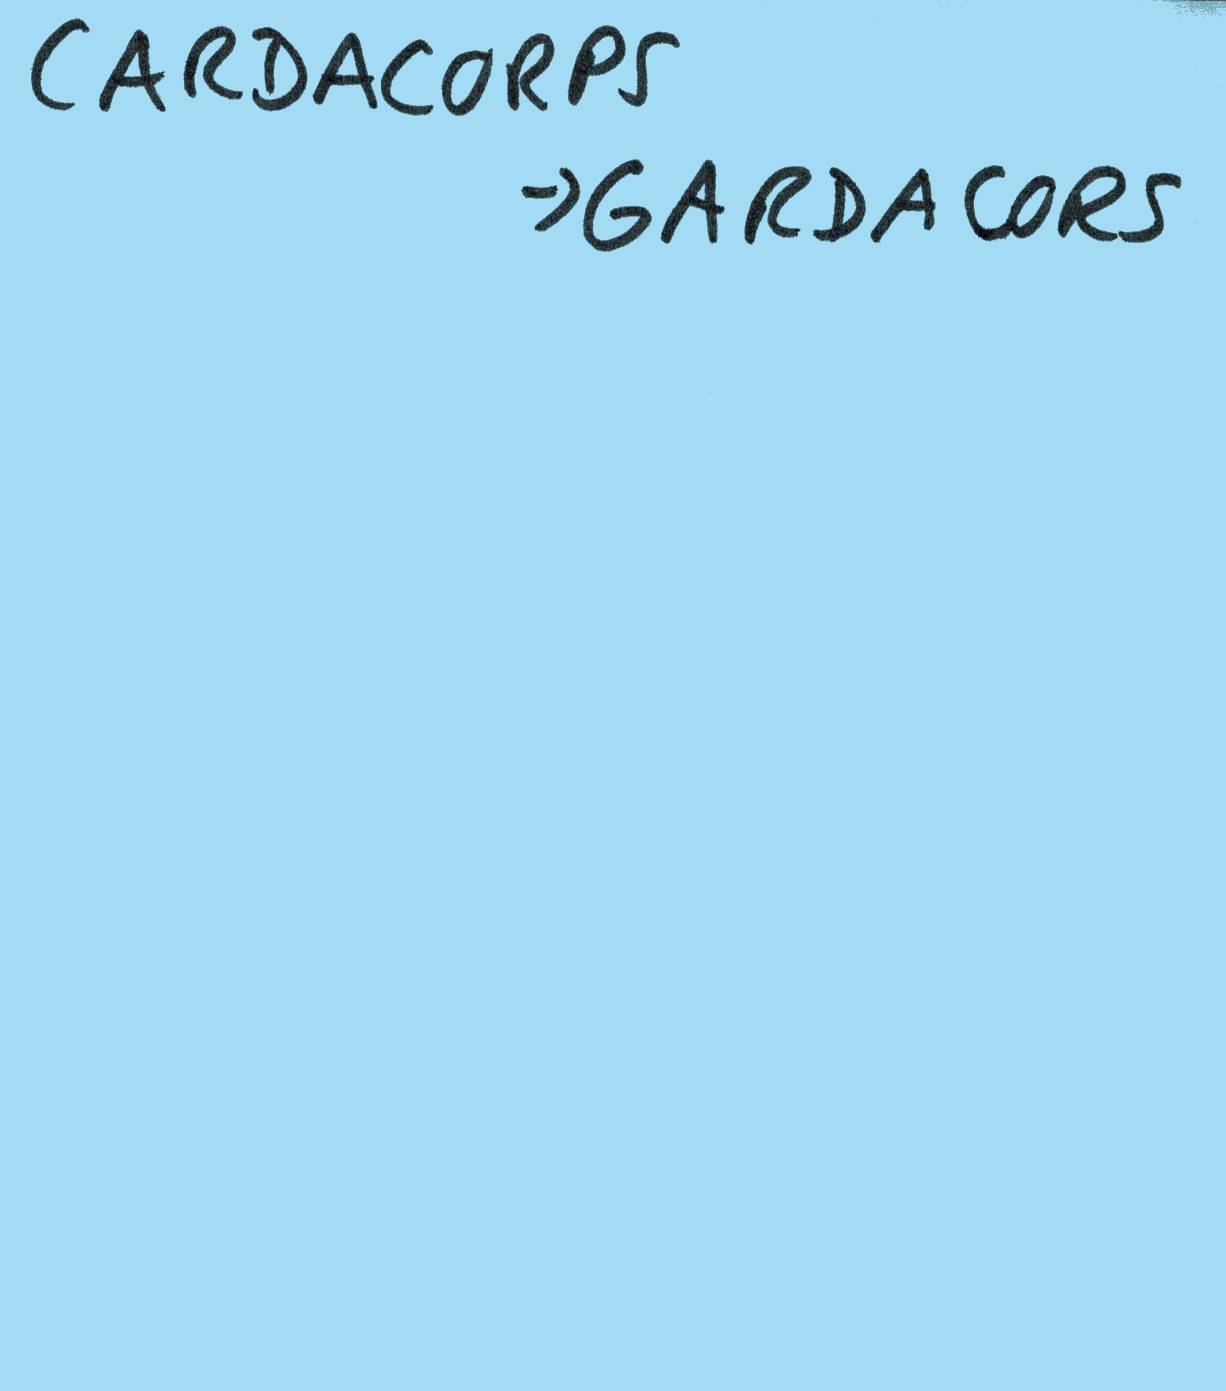 CARDACORPS
→GARDACORS